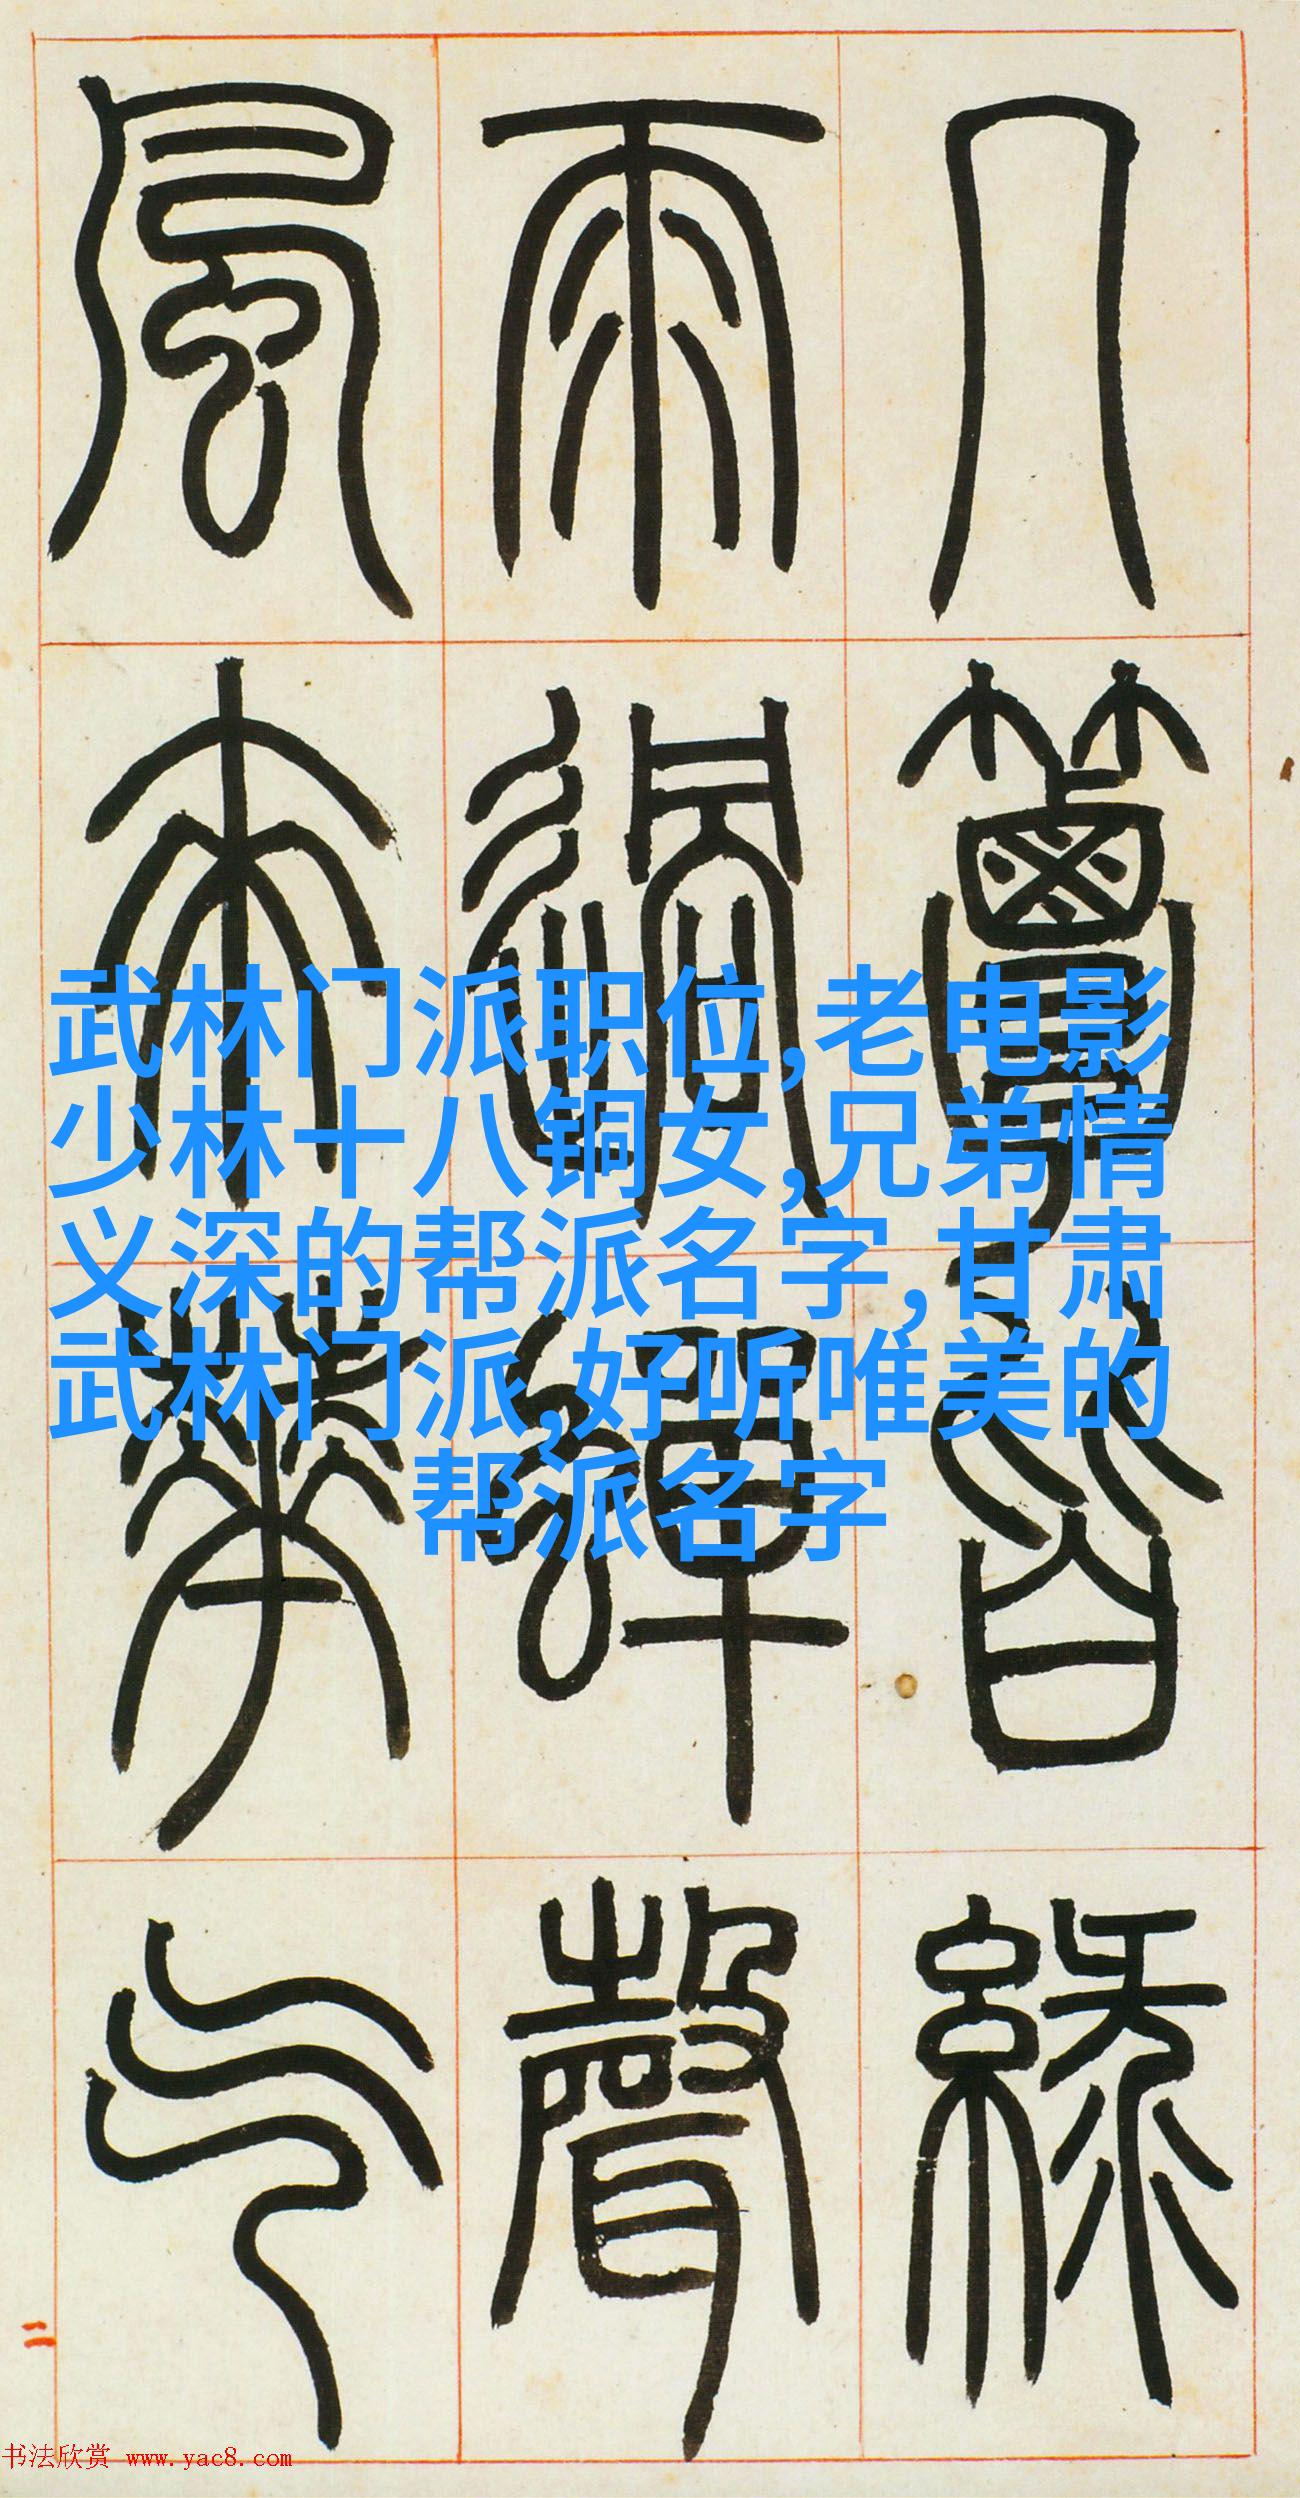 几簟皆綠
雨過蟬聲
風來華气
武林门派职位,老电影
少林十八铜女,兄弟情
义深的帮派名字,甘肃
武林门派,好听唯美的
帮派名字
二
书法欣赏 www.yac8.com